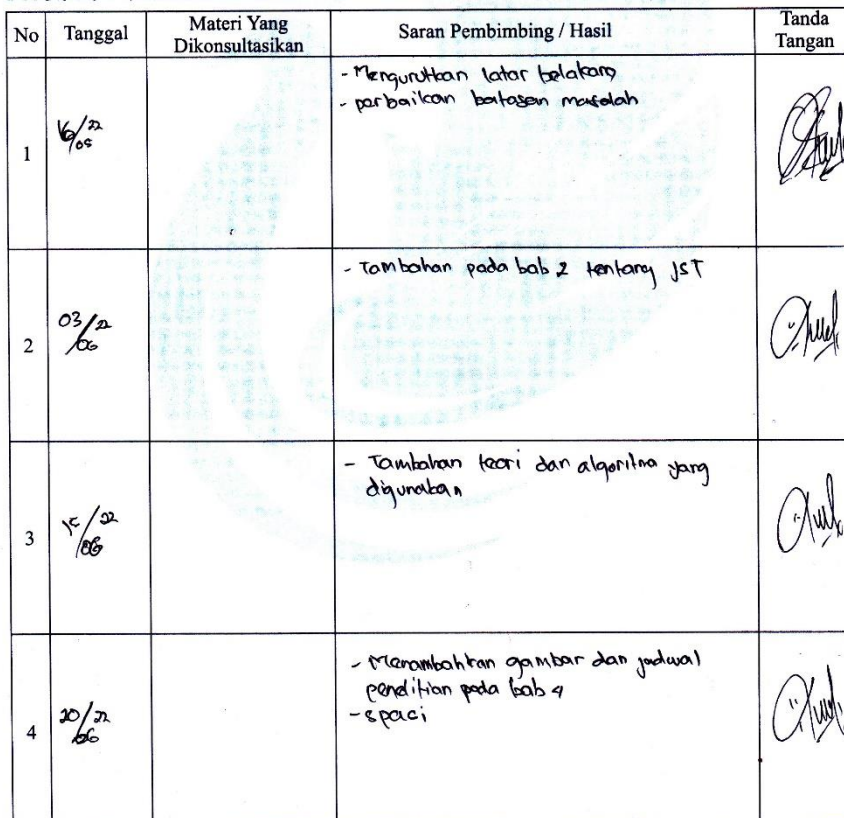 No Tanggal Materi Yang Dikonsultasikan Saran Pembimbing / Hasil Tanda Tangan
1
16/05 22
- Mengurutkan latar belakang
- perbaikan batasan masalah
2
03/06 22
- Tambahan pada bab 2 tentang JST
3
15/06 22
- Tambahan teori dan algoritma yang
digunakan
4
20/06 22
- Menambahkan gambar dan jadwal
penelitian pada bab 4
- spaci